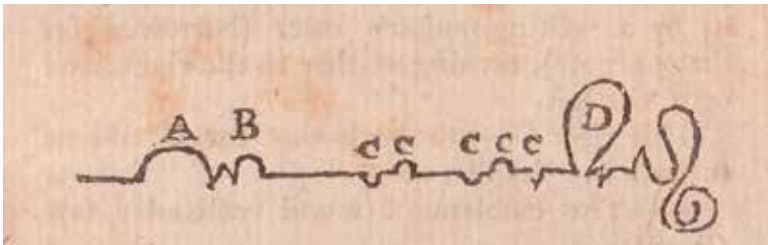 A B c c c c c D